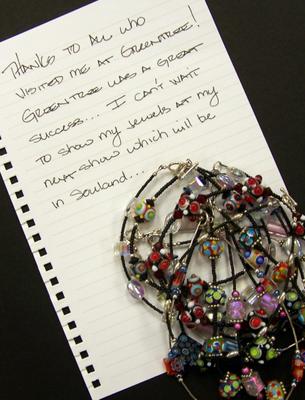 THANKS TO ALL WHO
VISITED ME AT GREENTREE!
GREENTREE WAS A GREAT
SUCCESS... I CAN'T WAIT
TO SHOW MY JEWELS AT MY
NEXT SHOW WHICH WILL BE
IN SOULAND...